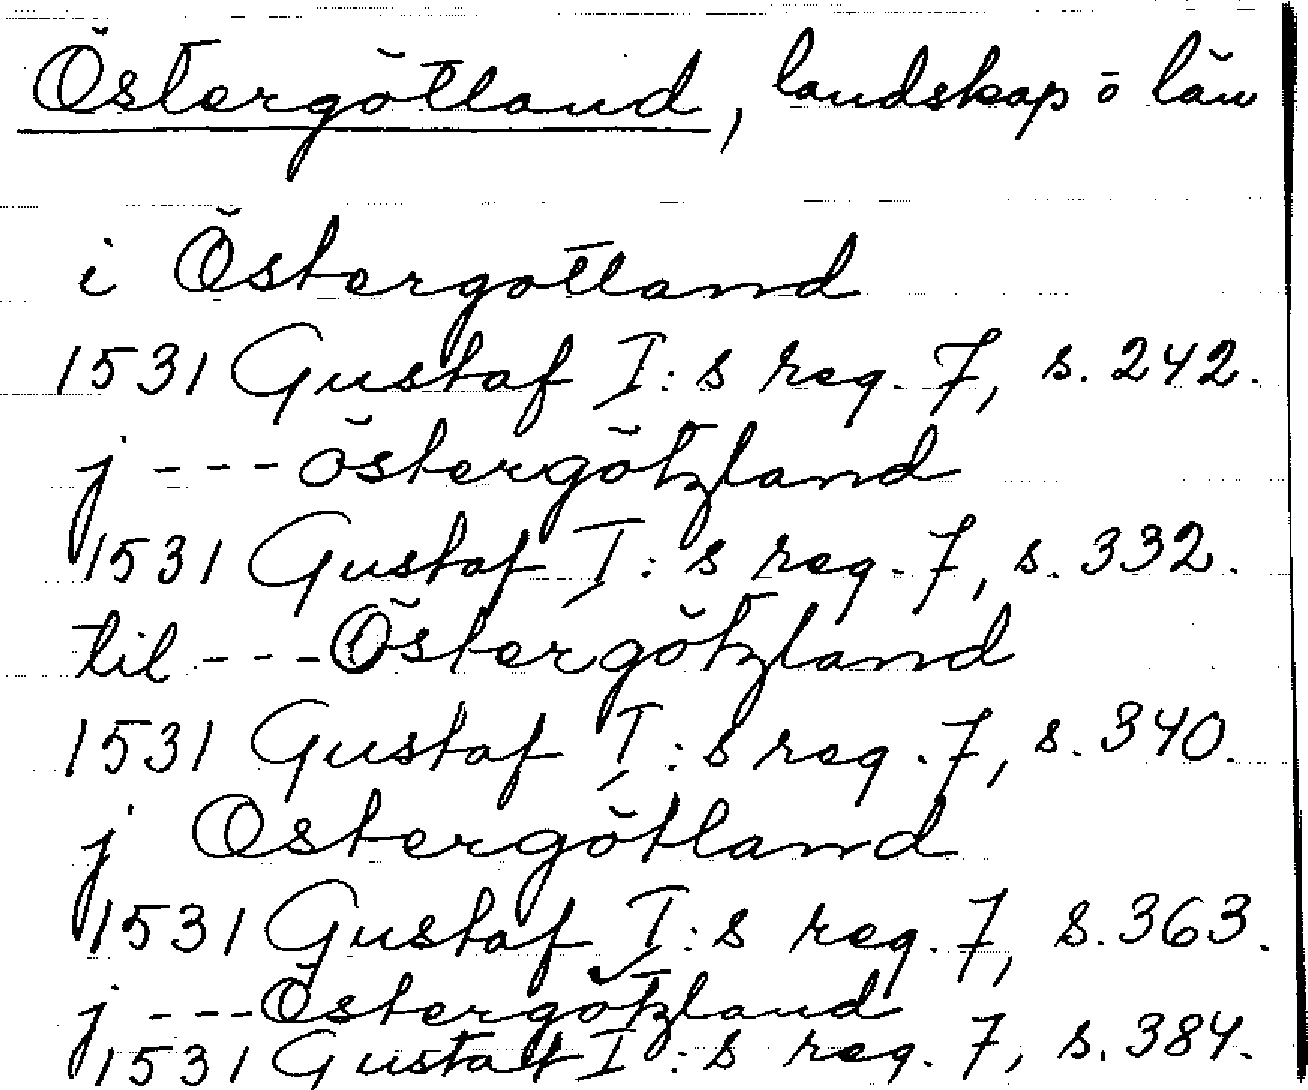 Östergötland, landskap o län
i Östergotland
1531 Gustaf I:s reg. 7, s. 242.
j --- östergötzland
1531 Gustaf I:s reg. 7, s. 332.
til --- Östergötzland
1531 Gustaf I:s reg. 7, s. 340.
j Ostergötland
1531 Gustaf I:s reg. 7, s. 363.
j --- Östergötzland
1531 Gustaf I:s reg. 7, s. 384.